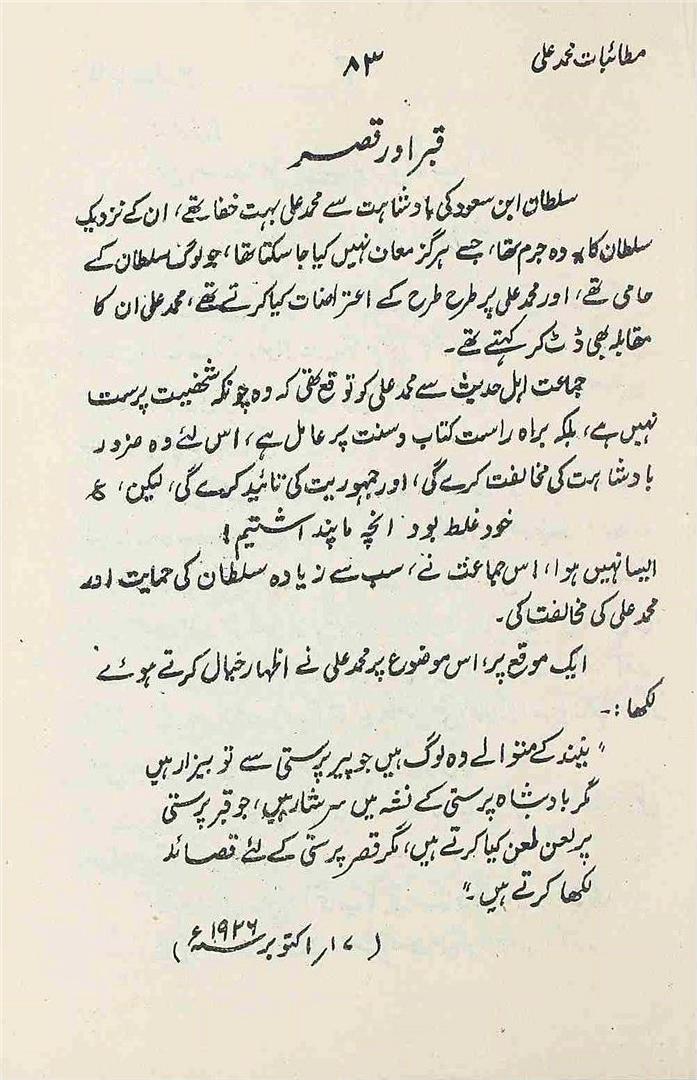 مطائبات محمد علی
۸۳
قبر اور قصر
سلطان ابن سعود کی بادشاہت سے محمد علی بہت خفا تھے، ان کے نزدیک
سلطان کا یہ وہ جرم تھا، جسے ہرگز معاف نہیں کیا جا سکتا تھا، جو لوگ سلطان کے
حامی تھے، اور محمد علی پر طرح طرح کے اعتراضات کیا کرتے تھے، محمد علی ان کا
مقابلہ بھی ڈٹ کر کہتے تھے۔
جماعت اہل حدیث سے محمد علی کو توقع تھی کہ وہ چونکہ شخصیت پرست
نہیں ہے، بلکہ براہ راست کتاب و سنت پر عامل ہے، اس لئے وہ ضرور
بادشاہت کی مخالفت کرے گی، اور جمہوریت کی تائید کرے گی، لیکن، ع
خود غلط بود انچہ ما پنداشتیم!
ایسا نہیں ہوا، اس جماعت نے، سب سے زیادہ سلطان کی حمایت اور
محمد علی کی مخالفت کی۔
ایک موقع پر، اس موضوع پر محمد علی نے اظہار خیال کرتے ہوئے
لکھا:۔
"نیند کے متوالے وہ لوگ ہیں جو پیر پرستی سے تو بیزار ہیں
مگر بادشاہ پرستی کے نشہ میں سرشار ہیں، جو قبر پرستی
پر لعن طعن کیا کرتے ہیں، مگر قصر پرستی کے لئے قصائد
لکھا کرتے ہیں۔"
(۱۷ر اکتوبر سنہ ۱۹۲۶ء)